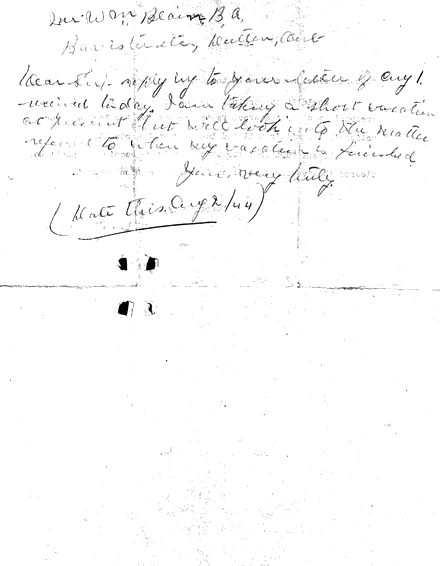 Mr. W M Blain, B, A,
Barrister, Dutton, Ont
Dear Sir. replying to your letter of Aug 1.
received today, I am taking a short vacation
at present but will look into the matter
referred to when my vacation is finished
Yours very truly,
(Date this. Aug 2/44)